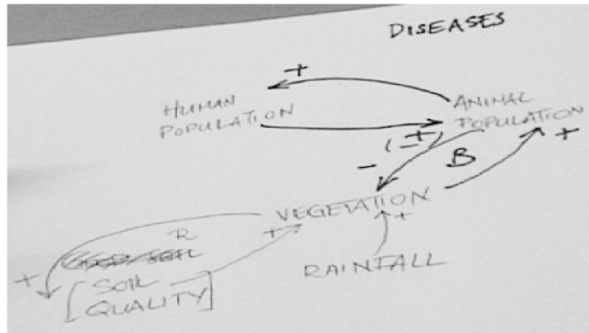 DISEASES
+
HUMAN
POPULATION
ANIMAL
POPULATION
+
-
B
+
VEGETATION
+
+
R
+
[SOIL
QUALITY]
RAINFALL